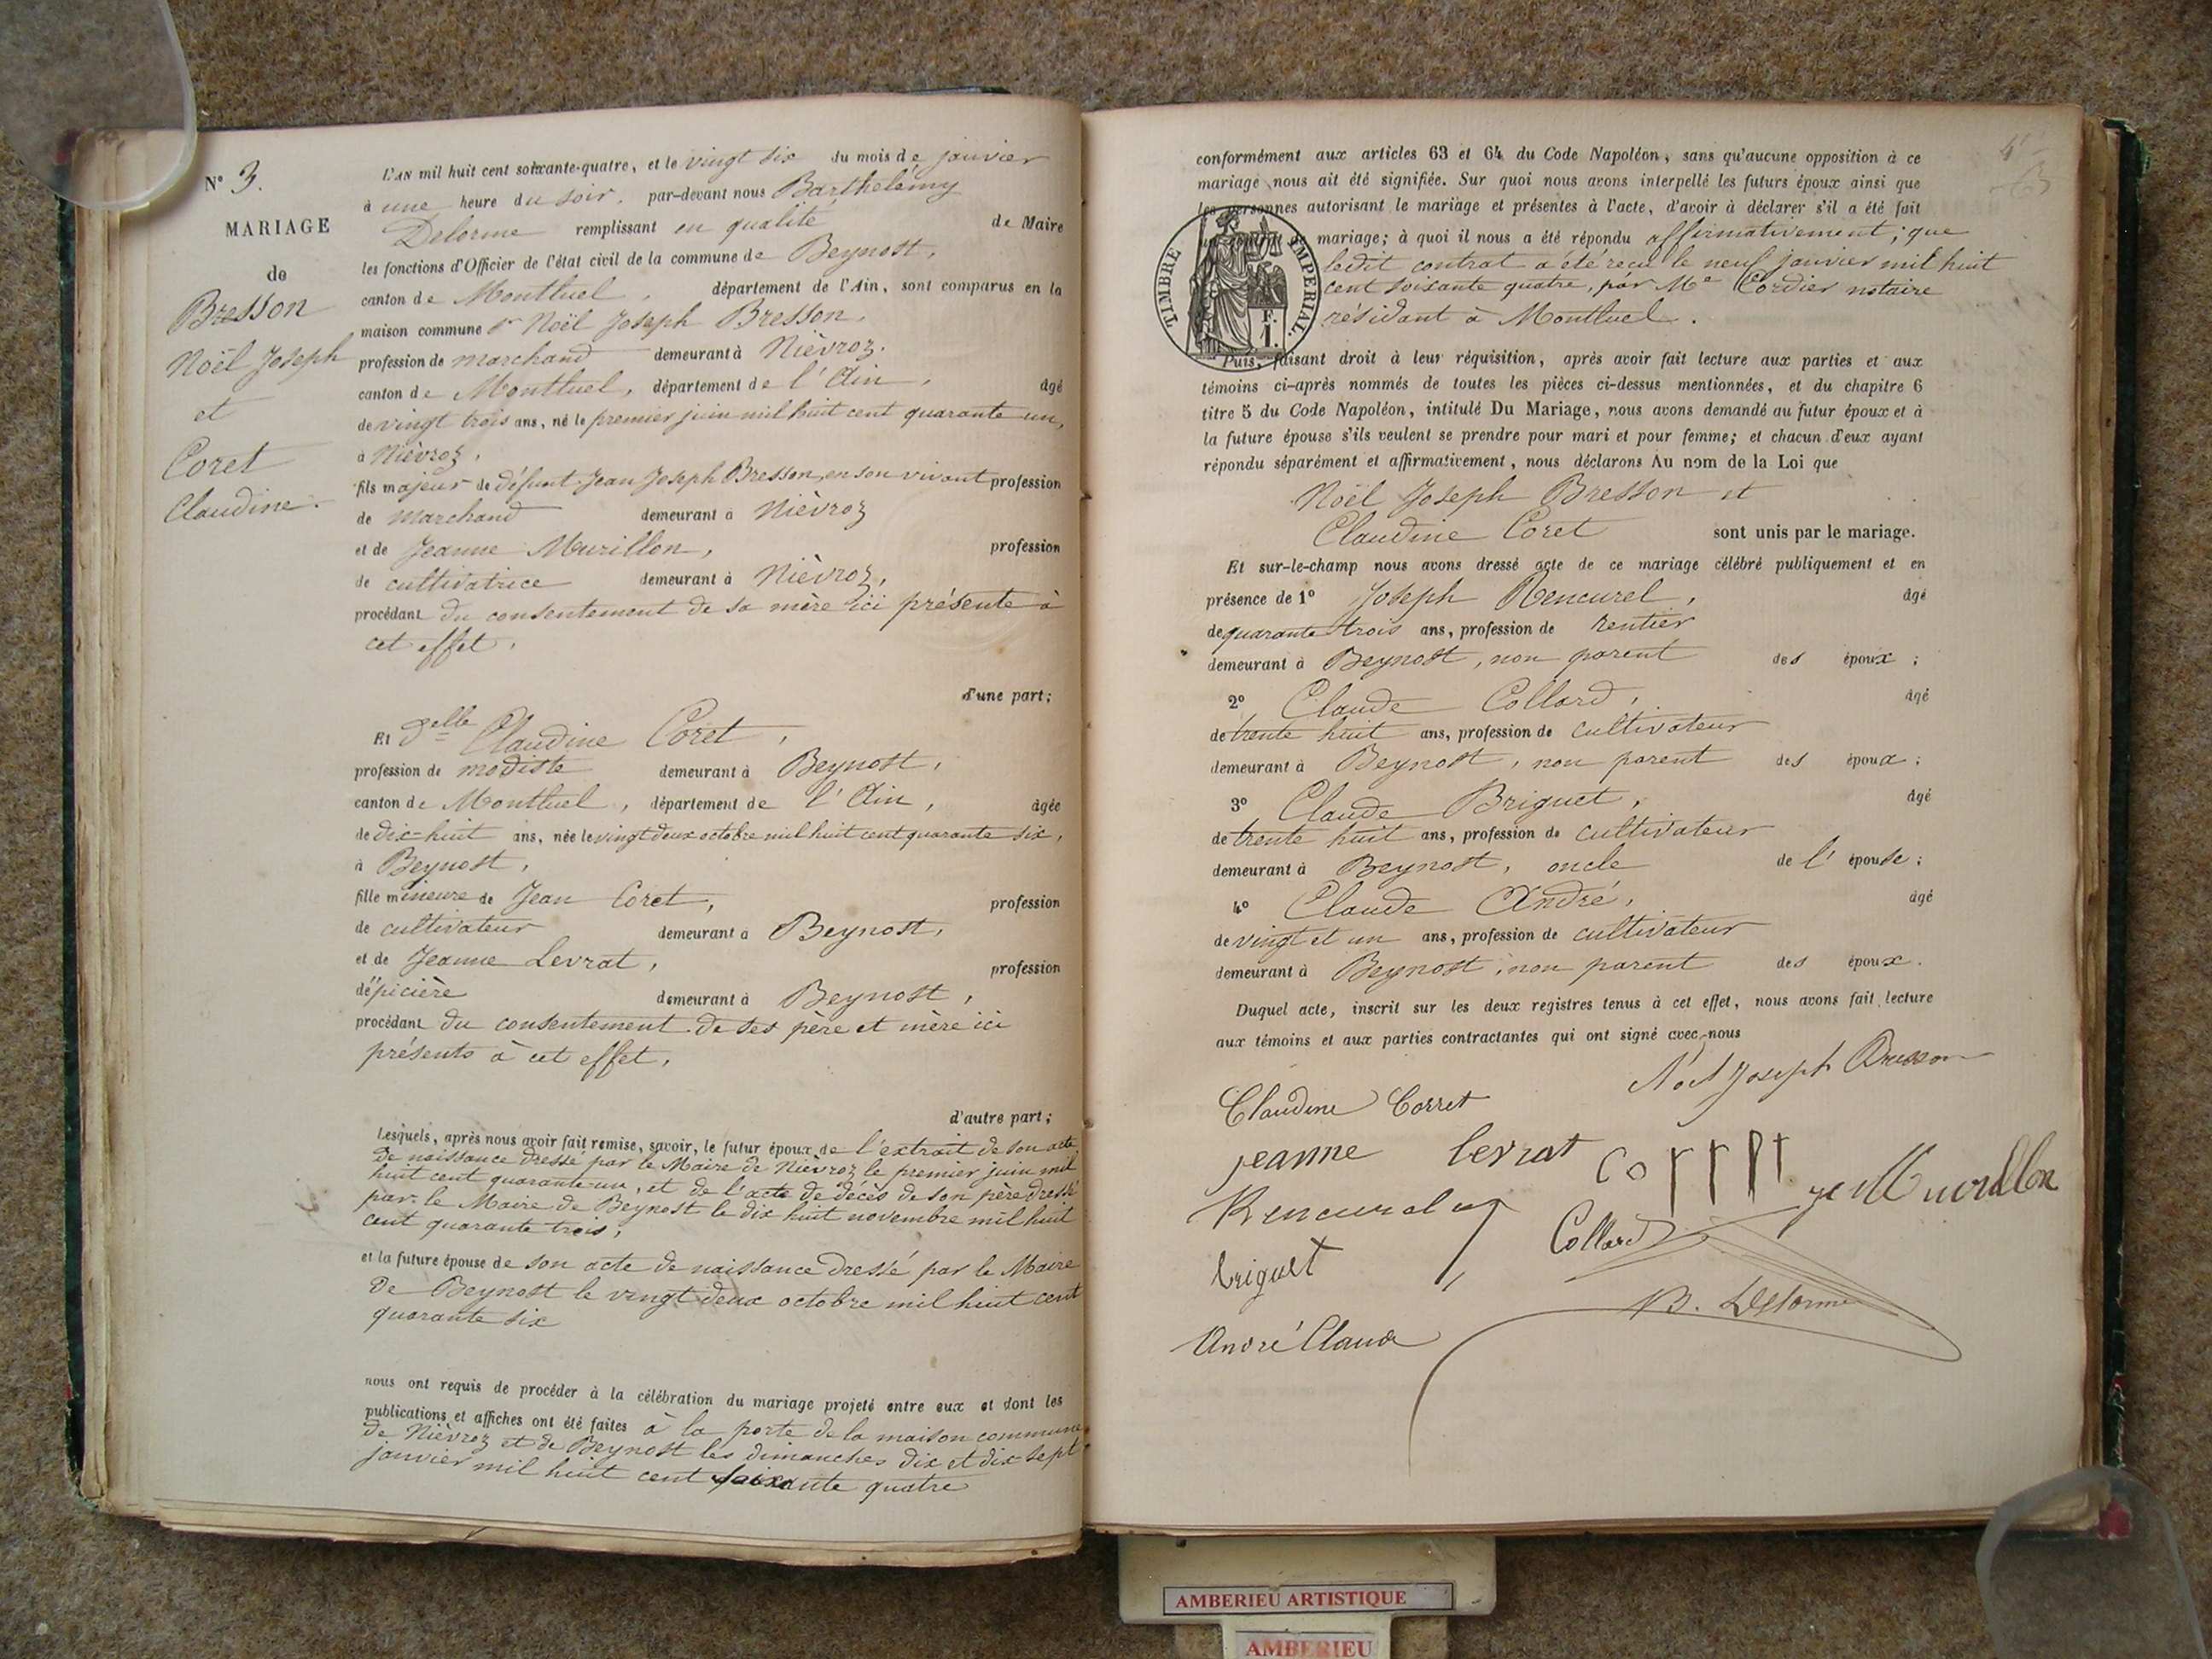 N° 3.
MARIAGE
de
Bresson
Noël Joseph
et
Coret
Claudine.
L'AN mil huit cent soixante-quatre, et le vingt six du mois de janvier
à une heure du soir, par-devant nous Barthelémy
Delorme remplissant en qualité de Maire
les fonctions d'Officier de l'état civil de la commune de Beynost,
canton de Montluel, département de l'Ain, sont comparus en la
maison commune Sr Noël Joseph Bresson,
profession de marchand demeurant à Nièvroz.
canton de Montluel, département de l'Ain, âgé
de vingt trois ans, né le premier juin mil huit cent quarante un,
à Nièvroz,
fils majeur de défunt Jean Joseph Bresson, en son vivant profession
de marchand demeurant à Nièvroz
et de Jeanne Murillon, profession
de cultivatrice demeurant à Nièvroz,
procédant du consentement de sa mère ici présente à
cet effet,
d'une part;
Et Delle Claudine Coret,
profession de modiste demeurant à Beynost,
canton de Montluel, département de l'Ain, âgée
de dix-huit ans, née le vingt deux octobre mil huit cent quarante six,
à Beynost,
fille mineure de Jean Coret, profession
de cultivateur demeurant à Beynost,
et de Jeanne Levrat, profession
d'épicière demeurant à Beynost,
procédant du consentement de ses père et mère ici
présents à cet effet,
d'autre part;
Lesquels, après nous avoir fait remise, savoir, le futur époux de l'extrait de son acte
de naissance dressé par le Maire de Nièvroz le premier juin mil
huit cent quarante un, et de l'acte de décès de son père dressé
par le Maire de Beynost le dix huit novembre mil huit
cent quarante trois,
et la future épouse de son acte de naissance dressé par le Maire
de Beynost le vingt deux octobre mil huit cent
quarante six
nous ont requis de procéder à la célébration du mariage projeté entre eux et dont les
publications et affiches ont été faites à la porte de la maison commune
de Nièvroz et de Beynost les dimanches dix et dix-sept
janvier mil huit cent soixante quatre
conformément aux articles 63 et 64 du Code Napoléon, sans qu'aucune opposition à ce
mariage nous ait été signifiée. Sur quoi nous avons interpellé les futurs époux ainsi que
les personnes autorisant le mariage et présentes à l'acte, d'avoir à déclarer s'il a été fait
mariage; à quoi il nous a été répondu affirmativement; que
ledit contrat a été reçu le neuf janvier mil huit
cent soixante quatre, par Me Cordier notaire
résidant à Montluel.
TIMBRE IMPERIAL.
F.
1.
Puis, faisant droit à leur réquisition, après avoir fait lecture aux parties et aux
témoins ci-après nommés de toutes les pièces ci-dessus mentionnées, et du chapitre 6
titre 5 du Code Napoléon, intitulé Du Mariage, nous avons demandé au futur époux et à
la future épouse s'ils veulent se prendre pour mari et pour femme; et chacun d'eux ayant
répondu séparément et affirmativement, nous déclarons Au nom de la Loi que
Noël Joseph Bresson et
Claudine Coret sont unis par le mariage.
Et sur-le-champ nous avons dressé acte de ce mariage célébré publiquement et en
présence de 1° Joseph Rencurel, âgé
de quarante trois ans, profession de rentier
demeurant à Beynost, non parent des époux;
2° Claude Collard, âgé
de trente huit ans, profession de cultivateur
demeurant à Beynost, non parent des époux;
3° Claude Briguet, âgé
de trente huit ans, profession de cultivateur
demeurant à Beynost, oncle de l'épouse;
4° Claude André, âgé
de vingt et un ans, profession de cultivateur
demeurant à Beynost, non parent des époux.
Duquel acte, inscrit sur les deux registres tenus à cet effet, nous avons fait lecture
aux témoins et aux parties contractantes qui ont signé avec nous
Noël Joseph Bresson
Claudine Corret
jeanne levrat corret
Rencurel
Collard
briguet
B. Delorme
André Claude
AMBERIEU ARTISTIQUE
AMBERIEU